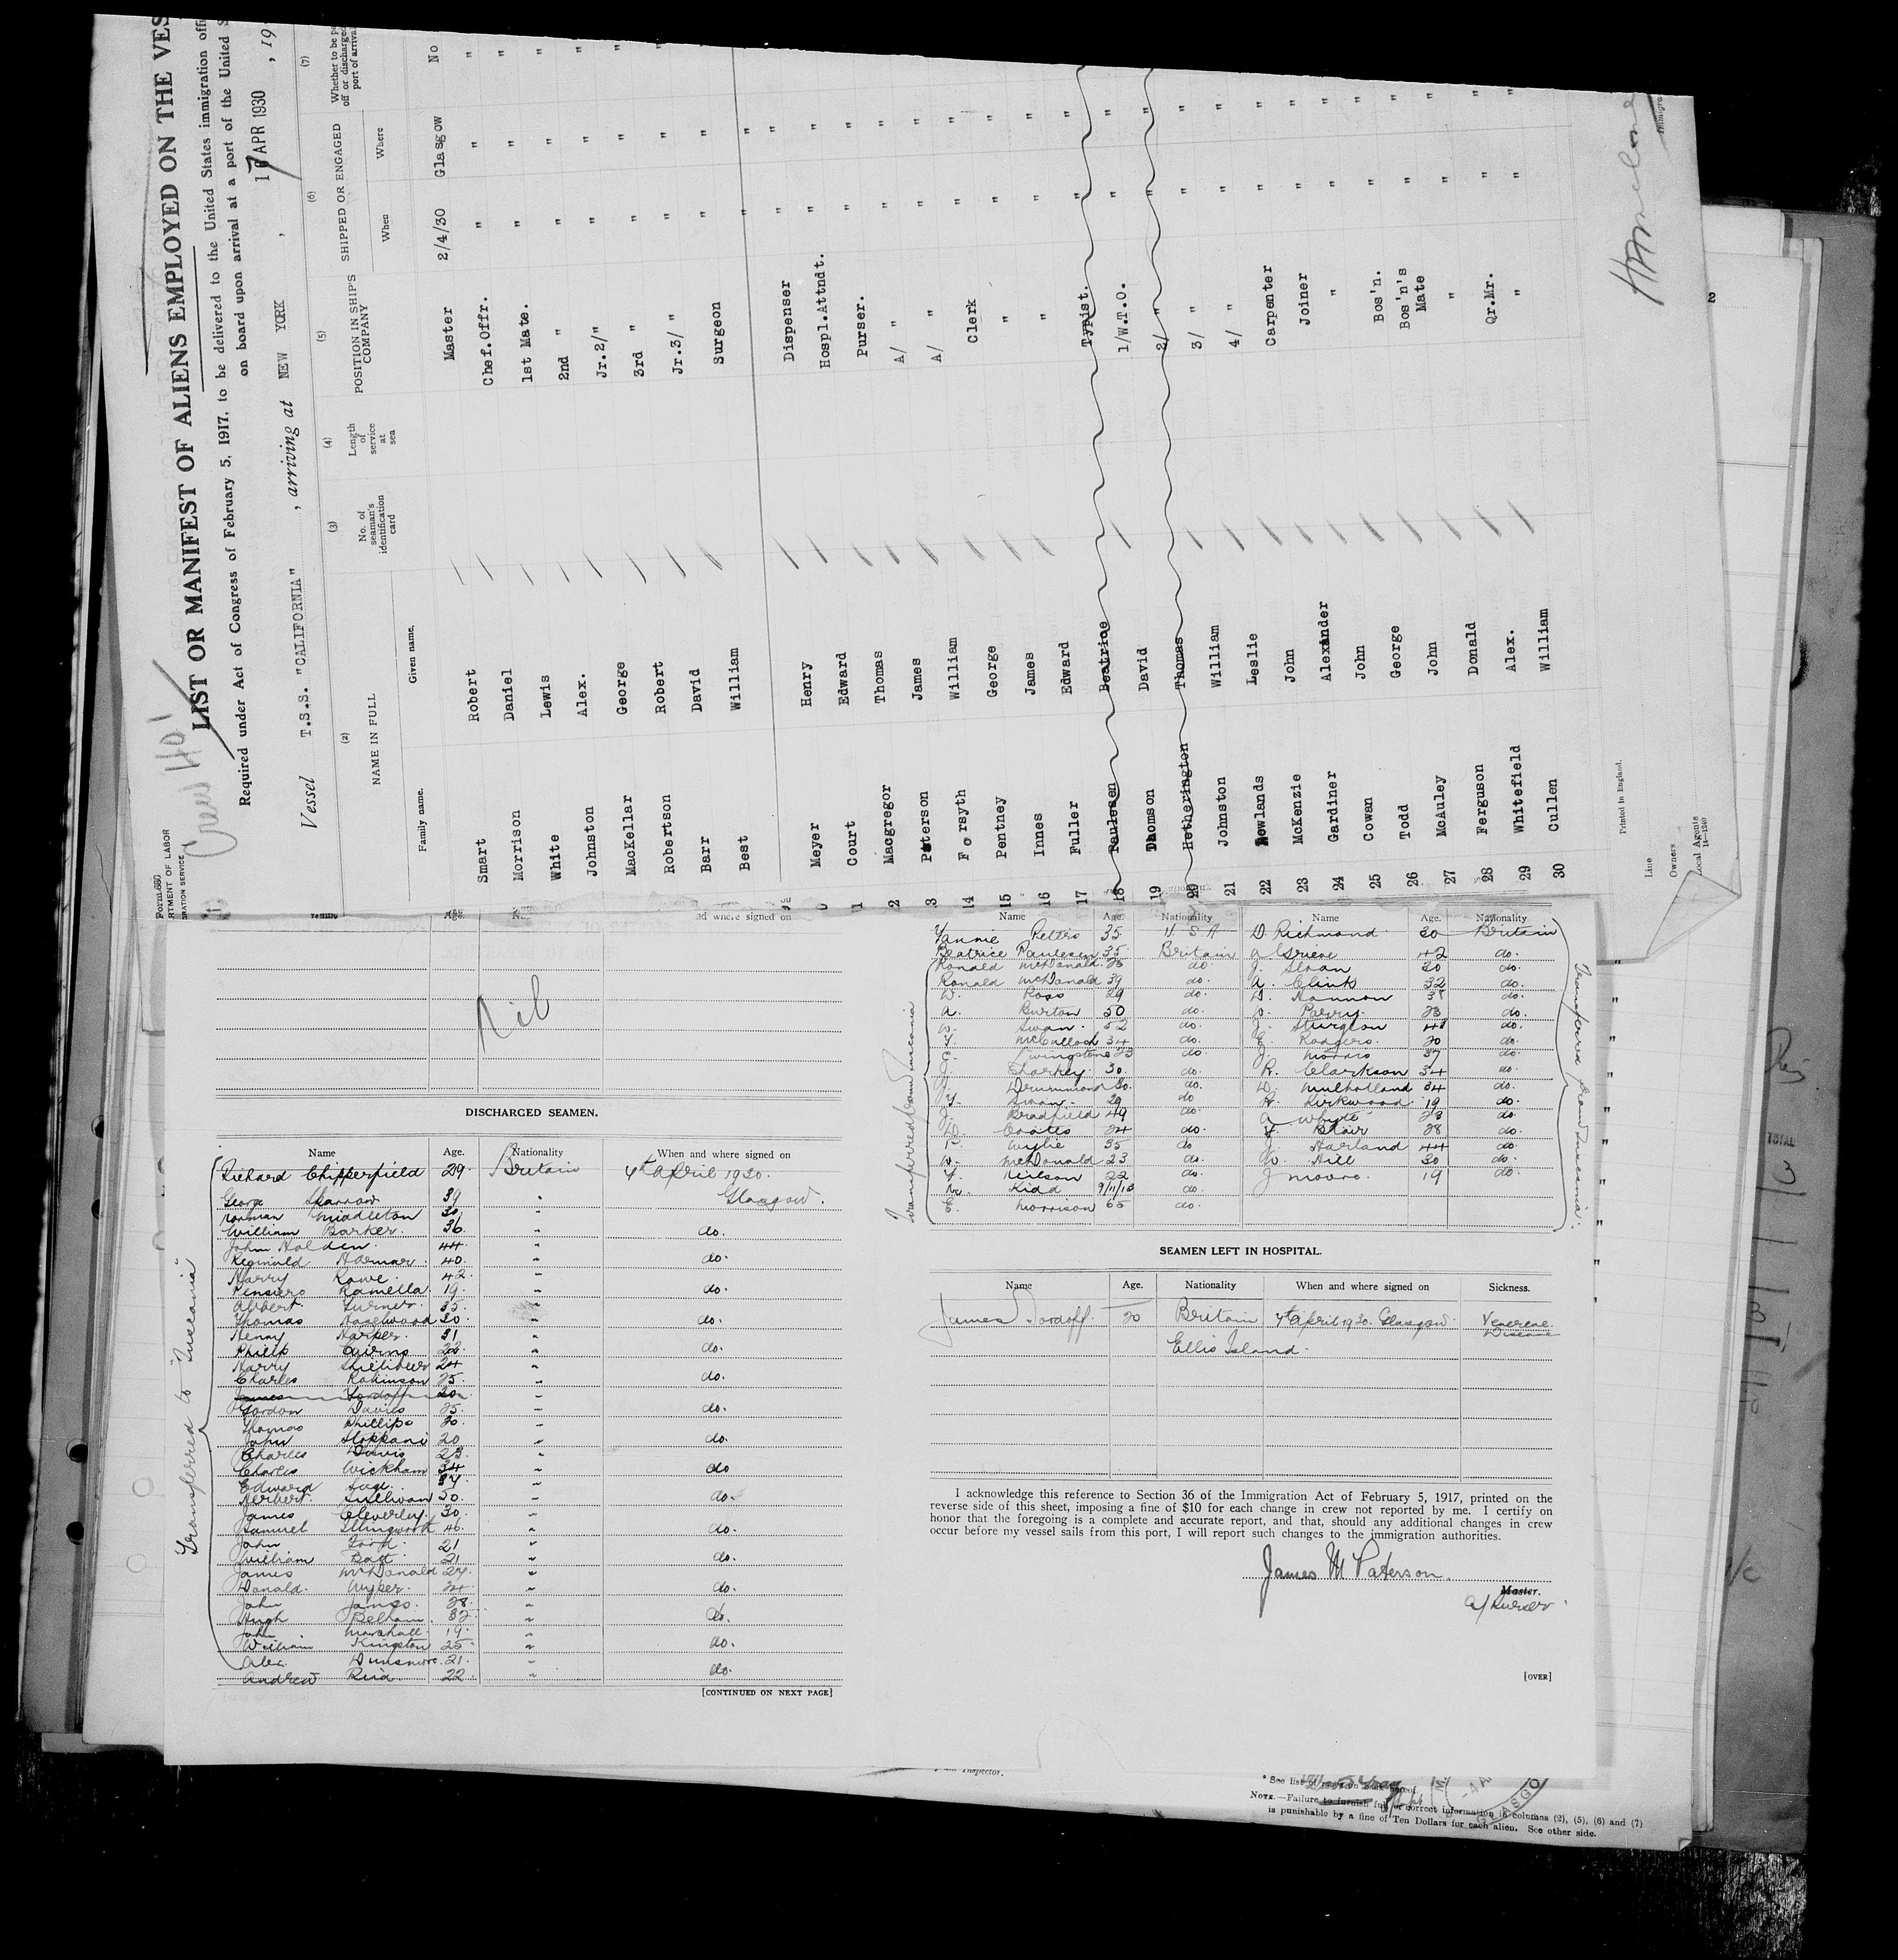 Form 680
RTMENT OF LABOR
RATION SERVICE
Crew 401
LIST OR MANIFEST OF ALIENS EMPLOYED ON THE VES
Required under Act of Congress of February 5, 1917, to be delivered to the United States immigration offi
on board upon arrival at a port of the United S
Vessel T.S.S. "CALIFORNIA" , arriving at NEW YORK , 17 APR 1930 , 19
(2) (3) (4) (5) (6) (7)
NAME IN FULL No. of seaman's identification card Length of service at sea POSITION IN SHIP'S COMPANY SHIPPED OR ENGAGED
Family name. Given name. When Where
Smart Robert Master 2/4/30 Glasgow No
Morrison Daniel Chef.Offr. " " "
White Lewis 1st Mate. " " "
Johnston Alex. 2nd " " " "
MacKellar George Jr.2/" " " "
Robertson Robert 3rd " " " "
Barr David Jr.3/ " " "
Best William Surgeon " "
Meyer Henry Dispenser " "
Court Edward Hospl.Attndt. " "
Macgregor Thomas Purser. " "
Paterson James A/ " " "
Forsyth William A/ " " "
14 Pentney George Clerk " "
15 Innes James " " "
16 Fuller Edward " " "
17 Paulesen Beatrice Typist. " "
18 Thomson David 1/W.T.O. " "
19 Hetherington Thomas 2/ " " "
20 Johnston William 3/ " " "
21 Newlands Leslie 4/ " " "
22 McKenzie John Carpenter " "
23 Gardiner Alexander Joiner " "
24 Cowan John " " "
25 Todd George Bos'n. " "
26 McAuley John Bos'n's Mate " "
27 Ferguson Donald " " "
28 Whitefield Alex. Qr.Mr. " "
29 Cullen William " " "
30
Line
Owners
Local Agents
Printed in England.
and where signed on
Nil
DISCHARGED SEAMEN.
Name Age. Nationality When and where signed on
Transferred to "Tuscania"
Richard Chipperfield 29 Britain 4th April 1930.
George Sharrow 39 " Glasgow.
Norman Middleton 30 "
William Barker. 36 " do.
John Holden. 44
Reginald Harmar. 40. " do.
Harry Rowe. 42 "
Ramella. 19. " do.
Albert Turner. 35. "
Thomas Hazelwood 30 " do.
Henry Harper. 31 "
Philip Cairns 22 " do.
Harry 24 "
Charles Robinson 25. " do.
James Tordoff 20
Gordon Davies 25. " do.
Thomas Phillips 20.
John Stoppani 20 " do.
Charles Davis 23. "
Charles Wickham 34 " do
Edward 37.
Herbert. Sullivan 20. " do.
James Cleverley. 30. "
Samuel Illingworth 46. " do.
John 21 "
William Batt. 21 " do.
James McDonald 24. "
Donald. Wyper. 24. " do.
John James. 28. "
Hugh Belham. 32 " do.
John Marshall. 19. "
William Kingston 25. " do.
Alec. Dunsmore. 21. "
Andrew Reid. 22 " do.
[CONTINUED ON NEXT PAGE]
Name Age. Nationality Name Age. Nationality
Transferred from Tuscania
Fannie Peters 35 U.S.A D. Richmond. 30 Britain
Beatrice Paulesen 35 Britain A Grieve 42 do.
Ronald McDonald. do. J. Sloan 30 do.
Ronald McDonald 39 do. A. Clink 32 do.
W. Ross 29 do. D. Hannon do.
A. Burton 50 do. Parry. 23 do.
W. Swan. 52 do. J. Sturgeon do.
McCulloch 34 do. E. Rodgers. 20 do.
Livingstone 23 do. J. Morris 37 do.
J. Sharkey. 30. do. R. Clarkson 34 do.
Drummond 30. do. D. Mulholland 34 do.
Swan. 29 do R. Kirkwood. 19 do.
J. Bradfield 49 do. A Whyte 23 do.
Coates 24 do. Blair 28 do.
Wylie 35 do J Harland 44 do.
W. McDonald 23 do. W. Hill 30 do.
Neilson 22 do. J Moore. 19 do.
Kidd 9/11/13 do.
E. Morrison 65 do.
Transferred from Tuscania.
SEAMEN LEFT IN HOSPITAL.
Name Age. Nationality When and where signed on Sickness.
James Tordoff. 20 Britain 4th April 1930. Glasgow. Venereal Disease
Ellis Island.
I acknowledge this reference to Section 36 of the Immigration Act of February 5, 1917, printed on the
reverse side of this sheet, imposing a fine of $10 for each change in crew not reported by me. I certify on
honor that the foregoing is a complete and accurate report, and that, should any additional changes in crew
occur before my vessel sails from this port, I will report such changes to the immigration authorities.
James M Paterson.
Master.
A/Purser.
[OVER]
Inspector.
* See list of
NOTE.—Failure to furnish full or correct information in columns (2), (5), (6) and (7)
is punishable by a fine of Ten Dollars for each alien. See other side.
TOTAL